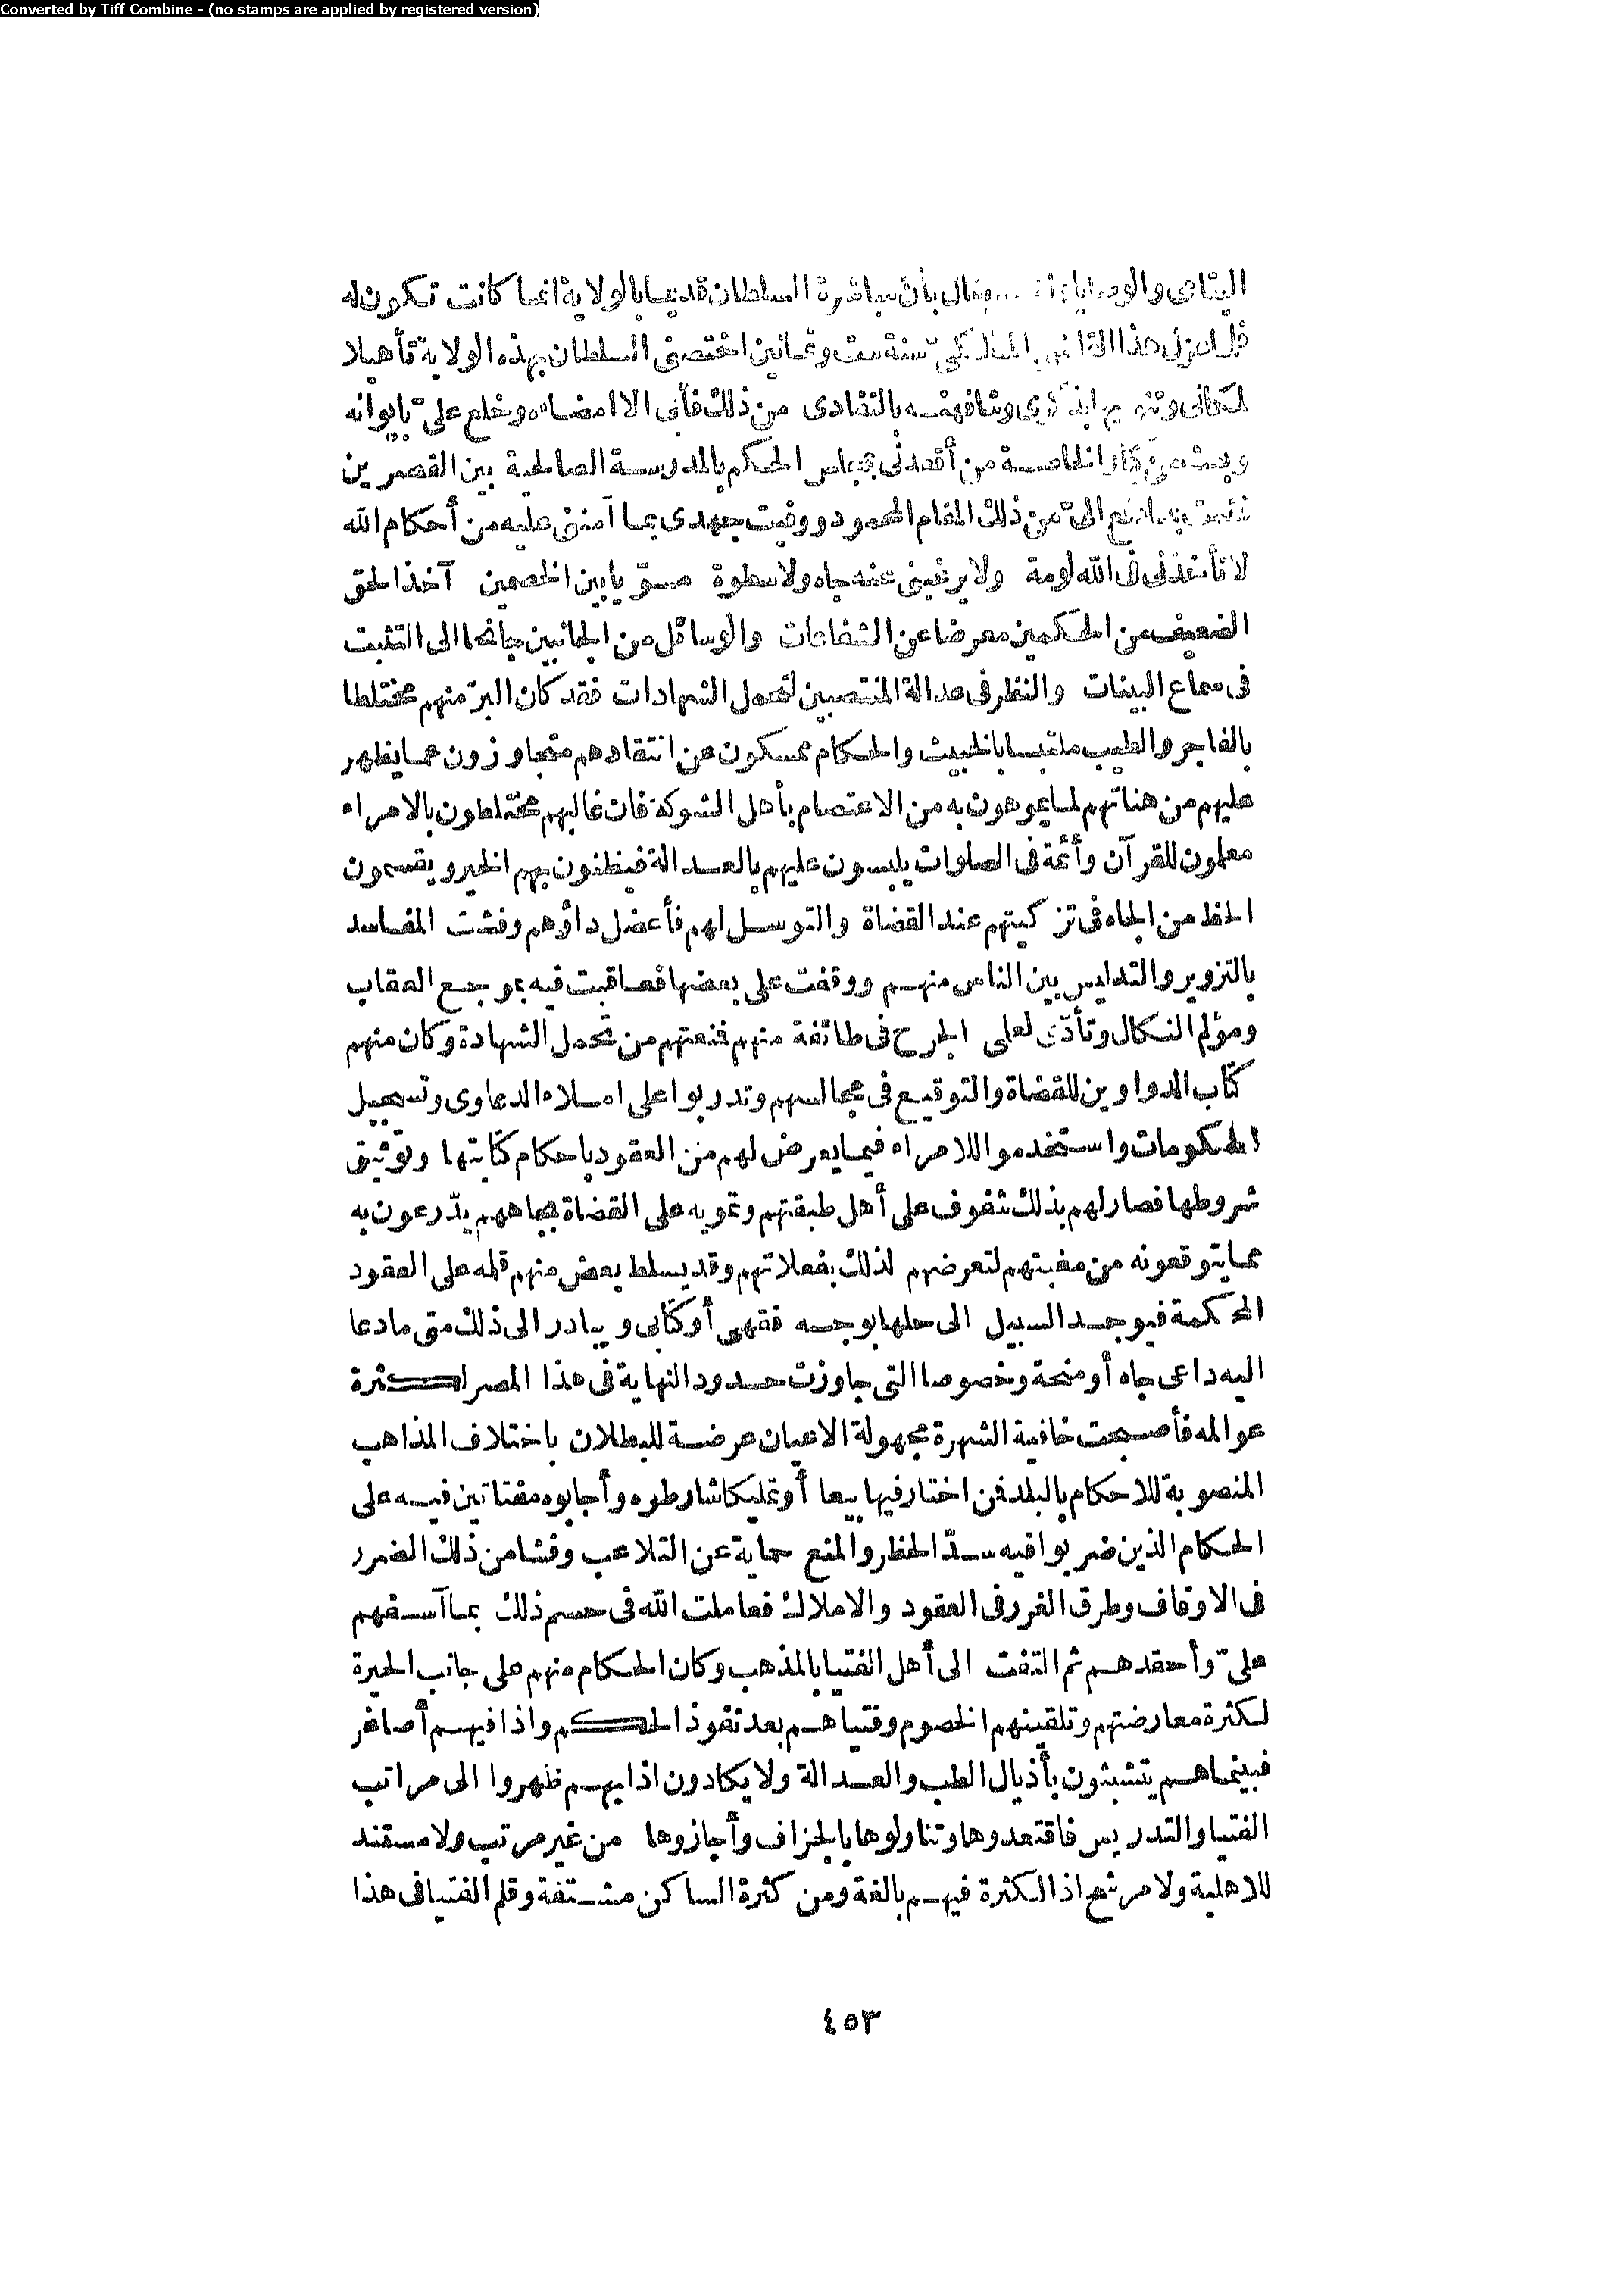 Converted by Tiff Combine - (no stamps are applied by registered version)
اليتامى والوصايا ويقال بأن مباشرة السلطان قديما بالولاية انما كانت تكون له
هذا القاضى المالكى سنة ست وثمانين اختصنى السلطان بهذه الولاية تأهيلا
لمكانى وتنويها بذكرى وشافهته بالتفادى من ذلك فأبى الا امضاءه وخلع علىّ بايوانه
وبعث من كبار الخاصة من أقعدنى بمجلس الحكم بالمدرسة الصالحية بين القصرين
فقمت بما دفع الىّ من ذلك المقام المحمود ووفيت جهدى بما آمننى عليه من أحكام الله
لا تأخذنى فى الله لومة ولا يرغبنى عنه جاه ولا سطوة مسوّيا بين الخصمين آخذا لحق
الضعيف من الحكمين معرضا عن الشفاعات والوسائل من الجانبين جانحا الى التثبت
فى سماع البينات والنظر فى عدالة المنتصبين لتحمل الشهادات فقد كان البرّ منهم مختلطا
بالفاجر والطيب ملتبسا بالخبيث والحكام ممسكون عن انتقادهم متجاوزون عما يظهر
عليهم من هناتهم لما يموهون به من الاعتصام بأهل الشوكة فان غالبهم مختلطون بالامراء
معلمون للقرآن وأئمة فى الصلوات يلبسون عليهم بالعدالة فيظنون بهم الخير ويقسمون
الحظ من الجاه فى تزكيتهم عند القضاة والتوسل لهم فأعضل داؤهم وفشت المفاسد
بالتزوير والتدليس بين الناس منهم ووقفت على بعضها فعاقبت فيه بموجع العقاب
ومؤلم النكال وتأدّى لعلى الجرح فى طائفة منهم فنعتهم من تحمل الشهادة وكان منهم
كتّاب الدواوين للقضاة والتوقيع فى مجالسهم وتدربوا على املاء الدعاوى وتسجيل
الحكومات واستخدموا للامراء فيما يعرض لهم من العقود باحكام كتابتها وتوثيق
شروطها فصار لهم بذلك شفوف على أهل طبقتهم وتمويه على القضاة بجاههم يدّرعون به
مما يتوقعونه من مغبتهم لتعرضهم لذلك بفعلاتهم وقد يسلط بعض منهم قلمه على العقود
المحكمة فيوجد السبيل الى حلها بوجه فقهى أو كتابى ويبادر الى ذلك متى ما دعا
اليه داعى جاه أو منحة وخصوصا التى جاوزت حدود النهاية فى هذا المصر لكثرة
عوالمه فأصبحت خافية الشهرة مجهولة الاعيان عرضة للبطلان باختلاف المذاهب
المنصوبة للاحكام بالبلد فمن اختار فيها بيعا أو تمليكا شارطوه وأجابوه مفتاتين فيه على
الحكام الذين ضربوا فيه سدّ الحظر والمنع حماية عن التلاعب وفشا من ذلك الضرر
فى الاوقاف وطرق الغرر فى العقود والاملاك فعاملت الله فى حسم ذلك بما آسفهم
علىّ وأحقدهم ثم التفت الى أهل الفتيا بالمذهب وكان الحكام منهم على جانب الحيرة
لكثرة معارضتهم وتلقينهم الخصوم وفتياهم بعد نفوذ الحكم واذا فيهم أصاغر
فبينما هم يتشبثون بأذيال الطب والعدالة ولا يكادون اذا بهم ظهروا الى مراتب
الفتيا والتدريس فاقتعدوها وتناولوها بالجزاف وأجازوها من غير مرتب ولا مستند
للاهلية ولا مرشح اذ الكثرة فيهم بالغة ومن كثرة الساكن مشتقة وقلم الفتيا فى هذا
٤٥٣